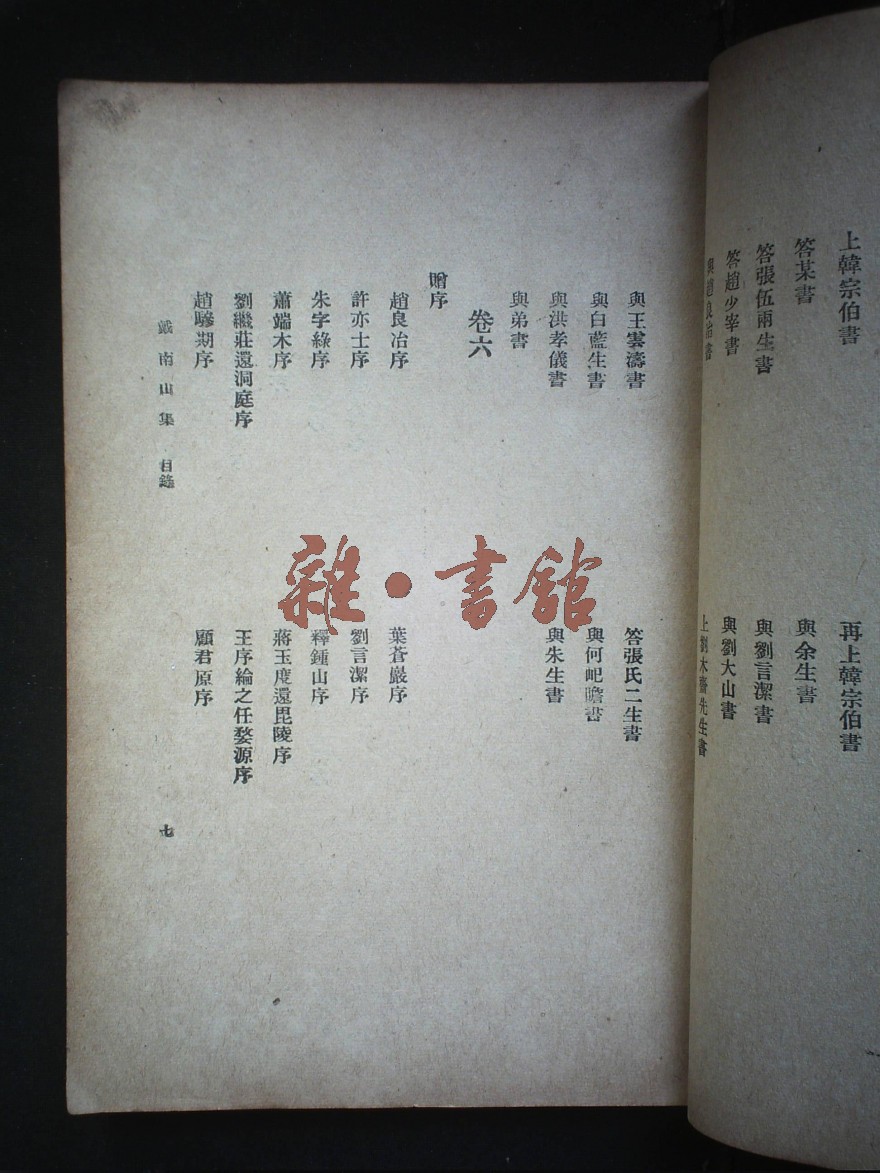 上韓宗伯書
再上韓宗伯書
答某書
與余生書
答張伍兩生書
與劉言潔書
答趙少宰書
與劉大山書
與趙良冶書
上劉木齋先生書
與王雲濤書
答張氏二生書
與白藍生書
與何屺瞻書
與洪孝儀書
與朱生書
與弟書
卷六
贈序
趙良冶序
葉蒼巖序
許亦士序
劉言潔序
朱字綠序
釋鍾山序
蕭端木序
蔣玉度還毘陵序
劉繼莊還洞庭序
王序綸之任婺源序
趙驂期序
顧君原序
戴南山集 目錄
七
雜·書館